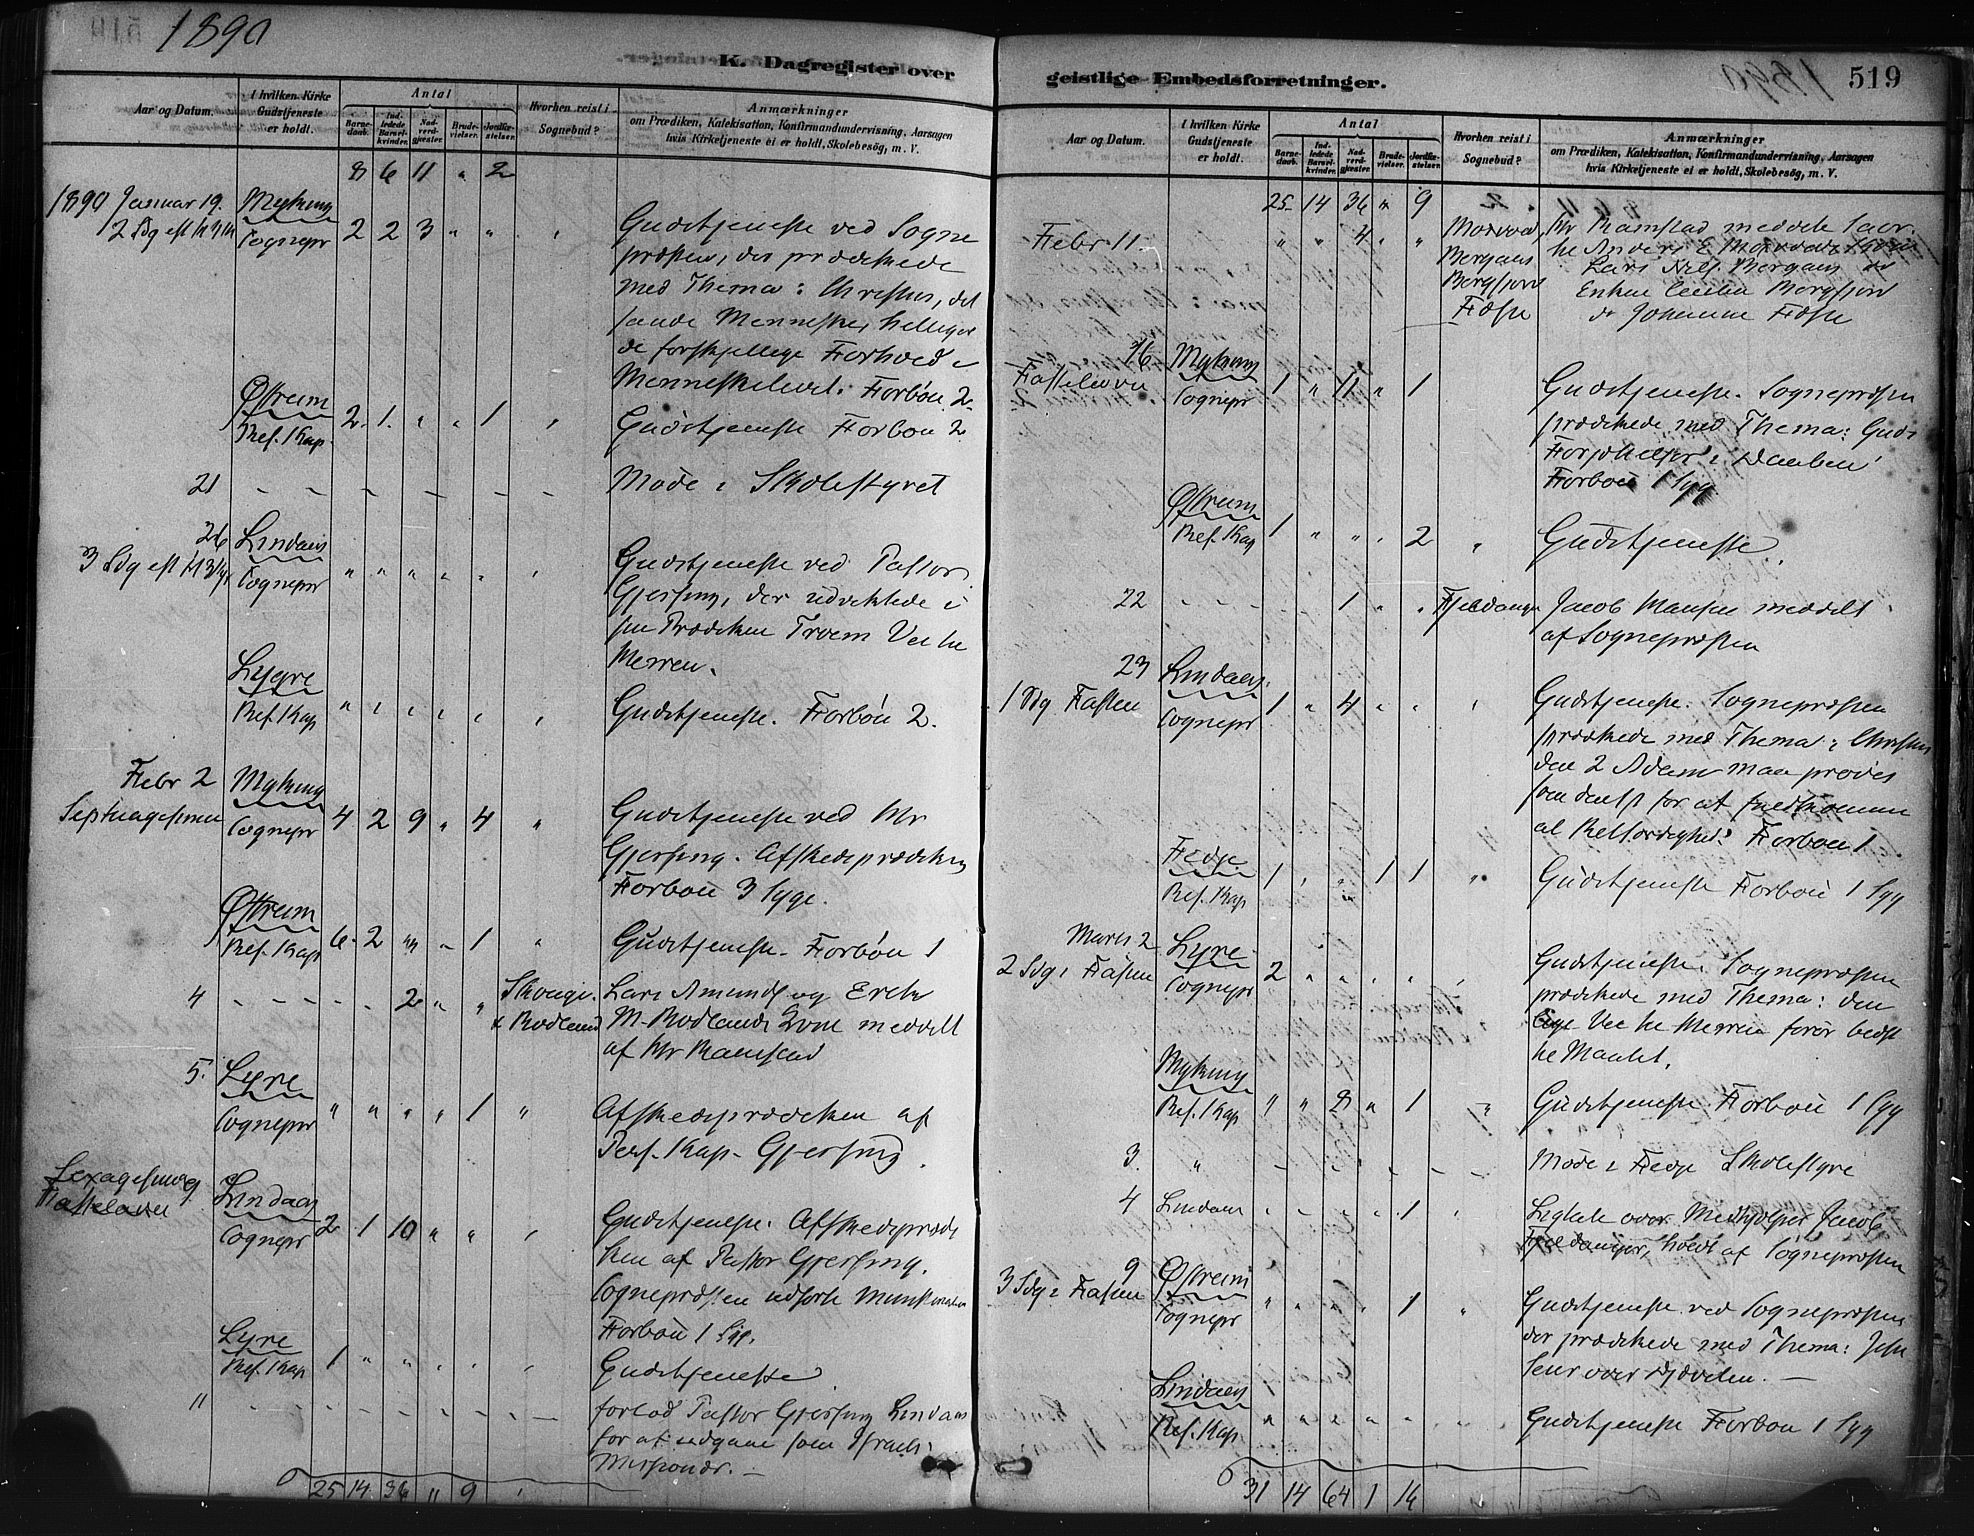 1890
K. Dagregister over
Aar og Datum.
I hvilken Kirke
Gudstjeneste
er holdt.
Antal
Barne-
daab.
Ind-
ledede
Barsel-
kvinder.
Nad-
verd-
gjester.
Brude-
vielser.
Jordfæ-
stelser.
Hvorhen reist i
Sognebud?
Anmærkninger
om Prædiken, Katekisation, Konfirmandundervisning, Aarsagen
hvis Kirketjeneste ei er holdt, Skolebesøg, m. V.
8 6 11 " 2
1890 Januar 19. Myking
2 Sdg eft H 3 K Sognepr 2 2 3 " "
Gudstjeneste ved Sogne
præsten, der prædikede
med Thema: Christus, det
sande Menneske, helliger
de forskjellige Forhold i
Menneskelivet. Forbøn 2.
Østreim
Pers. Kap 2 1 " " 1 Gudstjeneste Forbøn 2.
21 - - - - - - - Møde i Skolestyret
26 Lindaas
3 Sdg eft H 3 K Sognepr " " " " " Gudstjeneste ved Pastor
Gjessing, der udviklede i
sin Prædiken Troens Vei til
Herren.
Lygre
Pers. Kap " " " " " Gudstjeneste. Forbøn 2.
Febr 2 Myking
Septuagesima Sognepr 4 2 9 " 4 " Gudstjeneste ved Hr
Gjessing. Afskedsprædiken
Forbøn 3 Syge.
Østreim
Pers. Kap 6 2 " " 1 " Gudstjeneste. Forbøn 1
4 - - - - 2 " " Skauge
& Rødland
Lars Amunds og Erik
M. Rødlands Kone meddelt
af Hr Ramstad
5. Lyre
Sognepr " " " " 1 " Afskedsprædiken af
Pers. Kap. Gjessing.
Sexagesima 9. Lindaas
Fastelavn Sognepr 2 1 10 " " Gudstjeneste. Afskedspræd
ken af Pastor Gjessing.
Sognepræsten udførte
Forbøn 1 Sÿg.
Lyre
Pers. Kap 1 " " " " Gudstjeneste
11 - - - - - - - forlod Pastor Gjessing Lindaas
for at udgaae som Israels
Missionær. -
25 14 36 " 9
geistlige Embedsforretninger.
519
Aar og Datum.
I hvilken Kirke
Gudstjeneste
er holdt.
Antal
Barne-
daab.
Ind-
ledede
Barsel-
kvinder.
Nad-
verd-
gjester.
Brude-
vielser.
Jordfæ-
stelser.
Hvorhen reist i
Sognebud?
Anmærkninger
om Prædiken, Katekisation, Konfirmandundervisning, Aarsagen
hvis Kirketjeneste ei er holdt, Skolebesøg, m. V.
25 14 36 " 9
Febr 11. " " 4 " "
Bergaas
Bergfjord
Fosse
Hr Ramstad meddelte
Anders E
Lars Nels. Bergaas
Enken Cecilia Bergfjord
Johanne Fosse
16 Myking
Fastelavn Sognepr 1 " 11 " 1 Gudstjeneste. Sognepræsten
prædikede med Thema: Guds
i Daaben
Forbøn 1 Syg
Østreim
Pers. Kap 1 " " " 2 " Gudstjeneste.
22 - - - - 1 " " Fjeldanger Jacob Hansen meddelt
af Sognepræsten
23 Lindaas.
1 Sdg Fasten Sognepr 1 " 4 " " Gudstjeneste. Sognepræsten
prædikede med Thema: Christus
den 2 Adam maa prøves
for at fuldkomme
al Retfærdighed. Forbøn 1.
Fedje
Pers. Kap 1 " " 1 1 " Gudstjeneste Forbøn 1 Syg
Marts 2 Lyre
2 Sdg i Fasten Sognepr 2 " " " " Gudstjeneste. Sognepræsten
prædikede med Thema: Den
lige Vei til Herren fører bedst
til Maalet.
Myking
Pers. Kap " " 8 " 1 " Gudstjeneste Forbøn 1 Syg
3. " - - - - - - Møde i Fedje Skolestyre
4 Lindaas - - - - 1 Ligtale over Medhjelper Jacob
Fjeldanger, holdt af Sognepræsten
9 Østreim
3 Sdg i Fasten Sognepr " " " " 1 " Gudstjeneste ved Sognepræsten
der prædikede med Thema: Jesu
Seier over Djævelen. -
Lindaas
Pers. Kap. " " " " " Gudstjeneste Forbøn 1 Syg
31 14 64 1 16